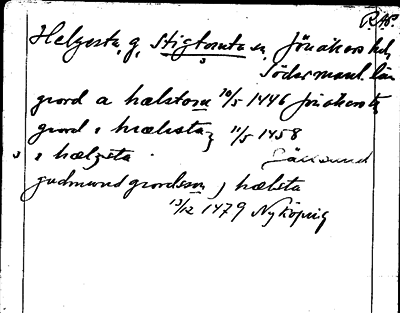 RAP.
Helgesta, g, Stigtomta sn, Jönåkers hd,
Södermanl. län
giord a hælstom 10/5 1446 Jönåkers
giord i hælista 11/5 1458
s i hælgsta
gudmund giordsson j hælsta
13/12 1479 Nyköping